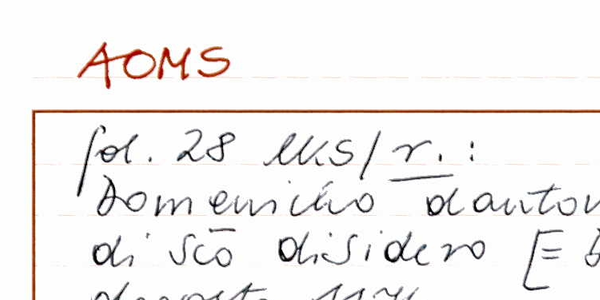 AOMS
fol. 28 lks/r.:
Domenicho danton
di sc̄o disidero [=